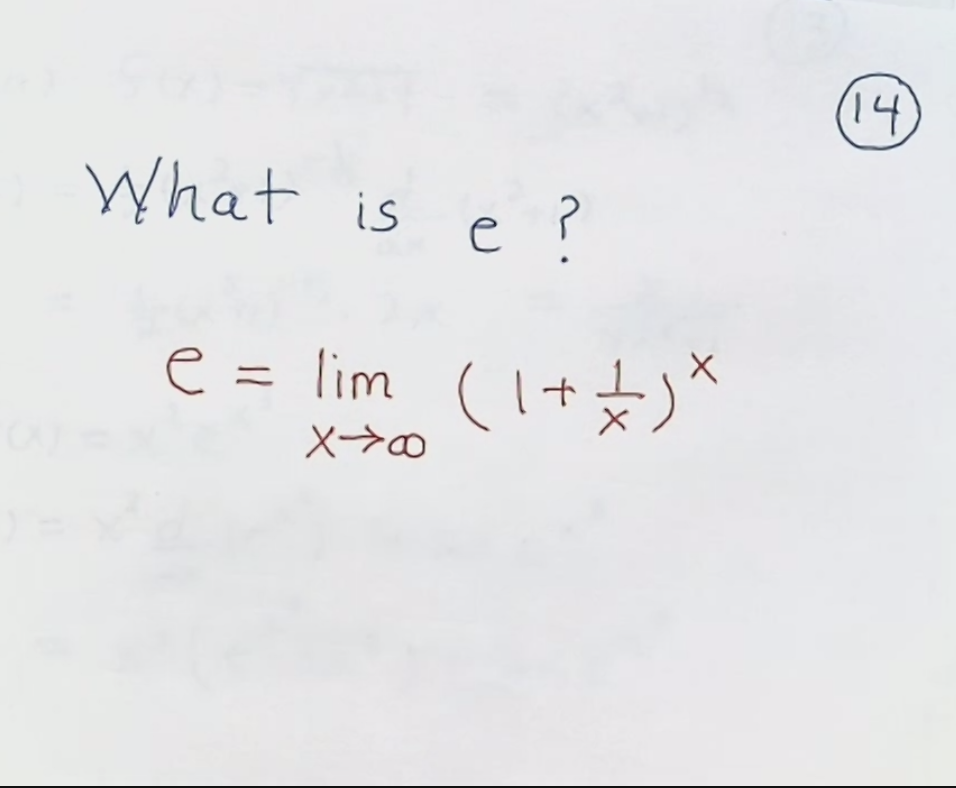 14
What is e ?
e = lim (1 + 1/x)^x
x→∞